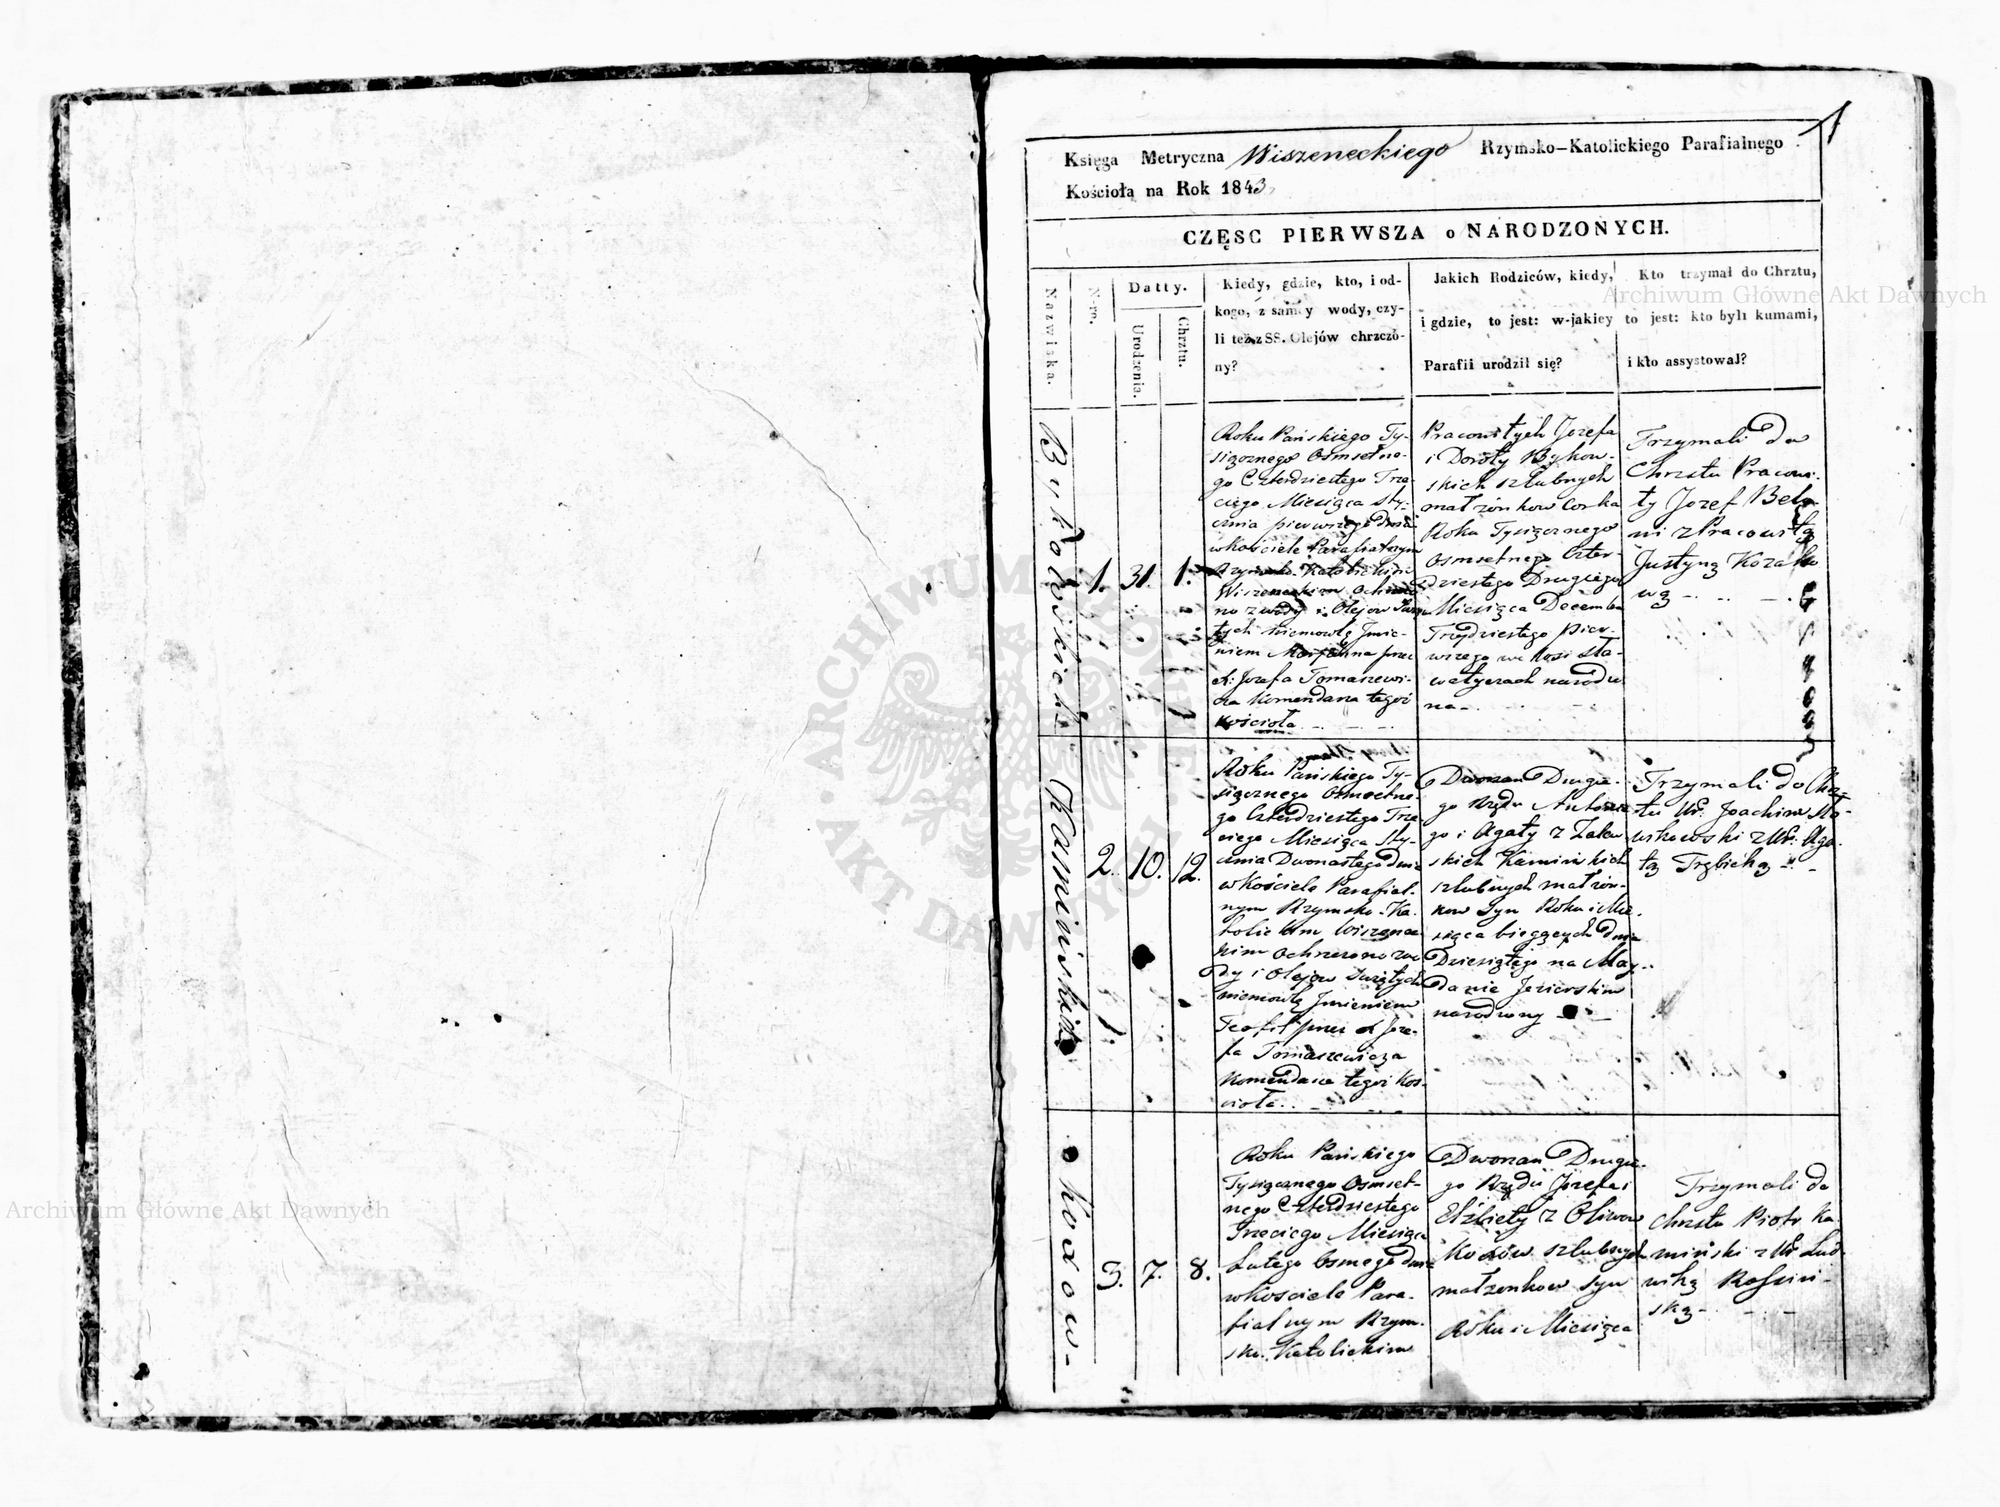 1
Księga Metryczna Wiszeneckiego Rzymsko-Katolickiego Parafialnego
Kościoła na Rok 1843,
CZĘSC PIERWSZA o NARODZONYCH.
Nazwiska.
N-ro.
Datty.
Urodzenia.
Chrztu.
Kiedy, gdzie, kto, i od-
kogo, z samey wody, czy-
li też z SS. Olejów chrzczo-
ny?
Jakich Rodziców, kiedy,
i gdzie, to jest: w-jakiey
Parafii urodził się?
Kto trzymał do Chrztu,
to jest: kto byli kumami,
i kto assystował?
Bykowskich
1. 31. 1.
Roku Pańskiego Ty-
siącznego Osmsetne-
go Czterdziestego Trze-
ciego Miesiąca Sty-
cznia pierwszego dnia
w Kościele Parafialnym
Rzymsko-Katolickim
Wiszeneckim Ochrzczo-
no z wody i Olejow Swię-
tych niemowlę Imie-
niem przez
X. Jozefa Tomaszewi-
cza Komendarza tegoż
Kościoła
Pracowitych Jozefa
i Doroty Bykow-
skich szlubnych
małżonkow Corka
Roku Tysiącznego
Osmsetnego Czter-
dziestego Drugiego
Miesiąca Decembra
Trzydziestego Pier-
wszego we Wsi Sła-
watyczach narodzo
na
Trzymali do
Chrztu Pracowi-
ty Jozef
z Pracowitą
Justyną Kozako
wą
Kaminskich
2. 10. 12.
Roku Pańskiego Ty-
siącznego Osmsetne-
go Czterdziestego Trze-
ciego Miesiąca Sty-
cznia Dwonastego dnia
w Kościele Parafial-
nym Rzymsko-Ka-
tolickim Wiszenec-
kim Ochrzczono z wo
dy i Olejow Swiętych
niemowlę Imieniem
Teofil przez X Joze-
fa Tomaszewicza
Komendarza tegoż Kos-
cioła
Dworzan Drugie-
go Rzędu Antonie-
go i Agaty z Zalew
skich Kamińskich
szlubnych małżon-
kow Syn Roku i Mie-
siąca bieżących dnia
Dziesiątego na May-
danie Jezierskim
narodzony
Trzymali do Chrz-
tu Ur. Joachim Sła-
wkowski z Ur. Aga-
tą Trębicką
Kozow-
3. 7. 8.
Roku Pańskiego
Tysiącznego Osmset-
nego Czterdziestego
Trzeciego Miesiąca
Lutego Osmego dnia
w Kosciele Para-
fialnym Rzym-
sko-Katolickim
Dworzan Drugie-
go Rzędu Jozefa i
Elżbiety z Oliwow
Kozów szlubnych
małżonkow Syn
Roku i Miesiąca
Trzymali do
Chrztu Piotr Ka
miński z Ur Lud-
wiką
ską
Archiwum Główne Akt Dawnych
Archiwum Główne Akt Dawnych
ARCHIWUM GŁÓWNE AKT DAWNYCH